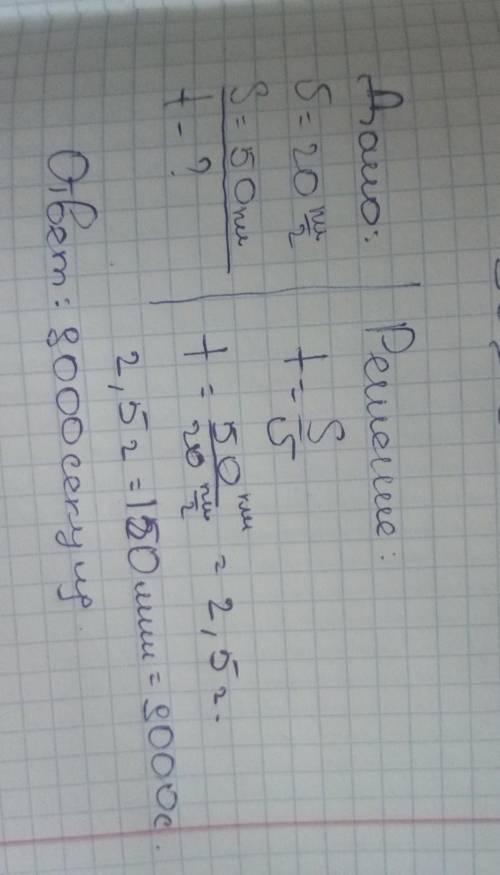 Дано:
υ = 20 км/ч
S = 50 км
t - ?
Решение:
t = S/υ
t = 50 км / 20 км/ч = 2,5 ч.
2,5 ч = 150 мин = 9000 с.
Ответ: 9000 секунд.